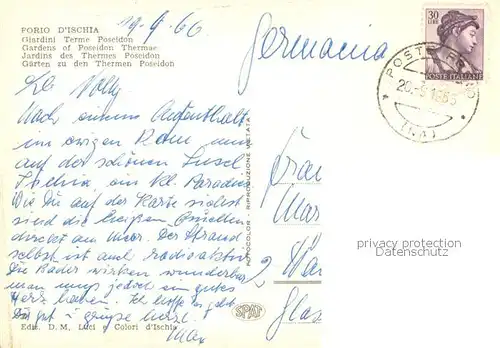 FORIO D'ISCHIA
Giardini Terme Poseidon
Gardens of Poseidon Thermae
Jardins des Thermes Poseidon
Gärten zu den Thermen Poseidon
19.9.66
Germania
30
LIRE
POSTE ITALIANE
POSTE
(NA)
Nach einem Aufenthalt
im ewigen Rom nun
auf der schönen Insel
Ischia, ein kl. Paradies
Wie Du auf der Karte siehst
sind die heissen Quellen
direkt am Meer. Der Strand
selbst ist auch radioaktiv
Die Bäder wirken wunderbar
man muss jedoch ein gutes
Herz haben. Ich hoffe es geht
Dir gut u grüsse herzl.
Max
Ediz. D. M. Luci e Colori d'Ischia
FOTOCOLOR - RIPRODUZIONE VIETATA
SPAT
Frau
Mar
2
privacy protection
Datenschutz